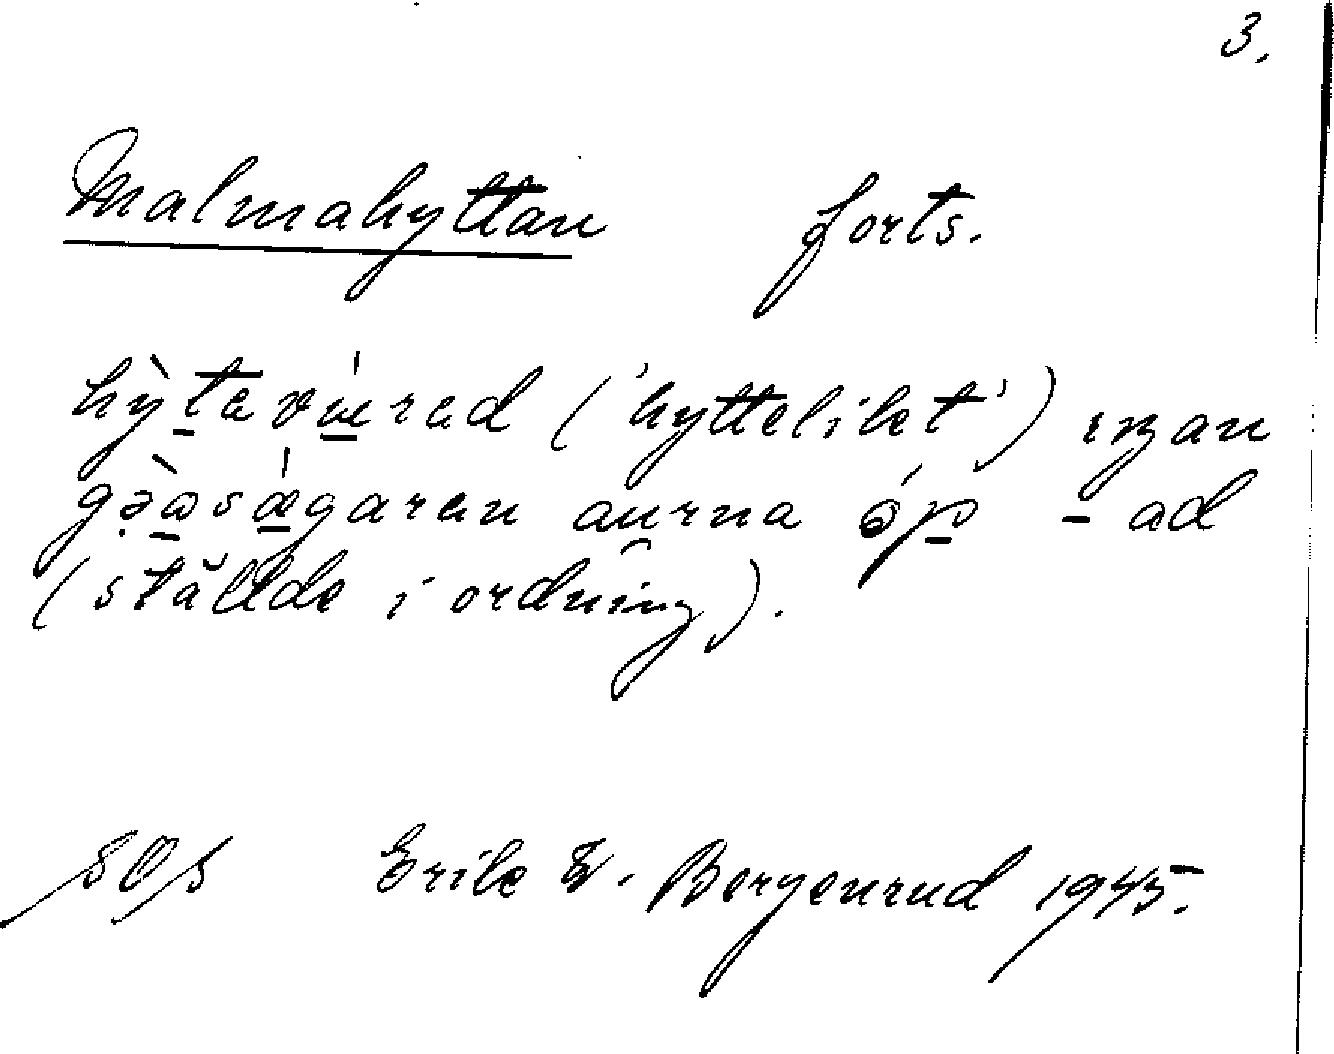 3.
Malmahyttan forts.
hỳt̲aví̲rad ('hyttelilet') ınan
gə̣̀a̲sǽ̲garen aurna óp̲ - ad
(ställde i ordning).
SOS Erik W. Bergenrud 1945.